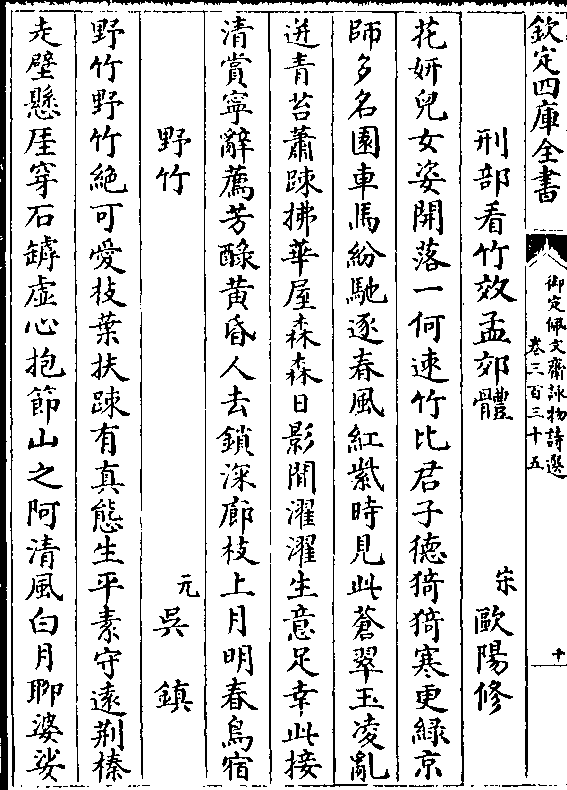 欽定四庫全書
御定佩文齋詠物詩選
卷三百三十五
十
刑部看竹效孟郊體
宋
歐陽修
花妍兒女姿開落一何速竹比君子德猗猗寒更綠京
師多名園車馬紛馳逐春風紅紫時見此蒼翠玉凌亂
迸青苔蕭踈拂華屋森森日影閒濯濯生意足幸此接
清賞寧辭薦芳醁黄昏人去鎖深廊枝上月明春鳥宿
野竹
元
吳鎮
野竹野竹絶可愛枝葉扶踈有真態生平素守遠荆榛
走壁懸厓穿石罅虚心抱節山之阿清風白月聊婆娑